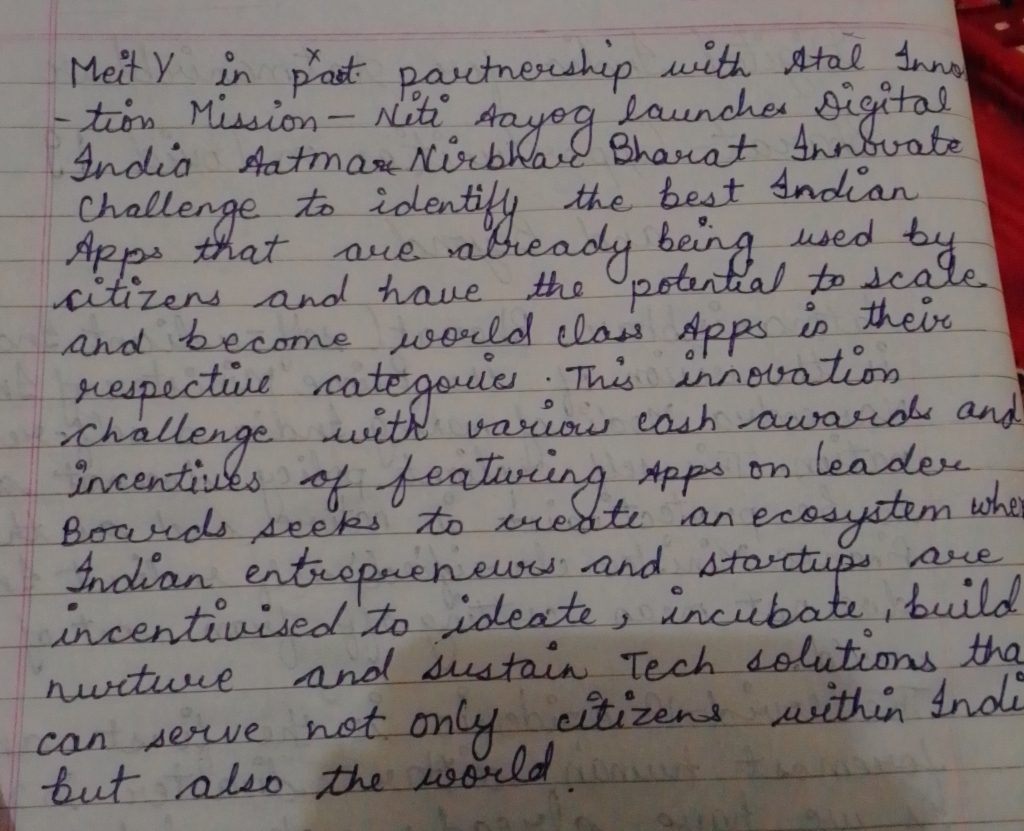 Meit Y in past partnership with Atal Inno
-tion Mission - Niti Aayog launches Digital
India Aatma Nirbhar Bharat Innovate
Challenge to identify the best Indian
Apps that are already being used by
citizens and have the potential to scale
and become world class Apps in their
respective categories. This innovation
challenge with various cash awards and
incentives of featuring Apps on leader
Boards seeks to create an ecosystem whe
Indian entrepreneurs and startups are
incentivised to ideate, incubate, build
nurture and sustain Tech solutions tha
can serve not only citizens within Indi
but also the world.